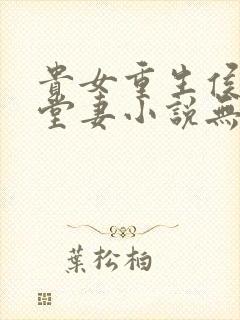 貴女重生侯
堂妻小說無
葉松柏